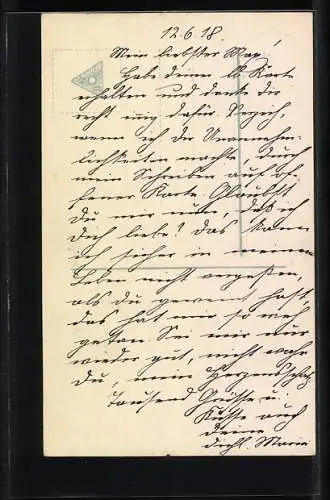 12.6.18.
Mein liebster Max!
Habe deine lb. Karte
erhalten und danke dir
recht innig dafür. Verzeih,
wenn ich dir Unannehm-
lichkeiten machte, durch
mein Schreiben auf of-
fener Karte. Glaubst
Du mir nun, daß ich
Dich liebe? Das kann
ich sicher in meinem
Leben nicht vergeßen,
als du geweint hast,
das hat mir so weh
getan. Sei mir nur
wieder gut, nicht wahr
Du, mein Herzensschatz.
Tausend Grüsse u.
Küsse auch
deine
dichl. Marie